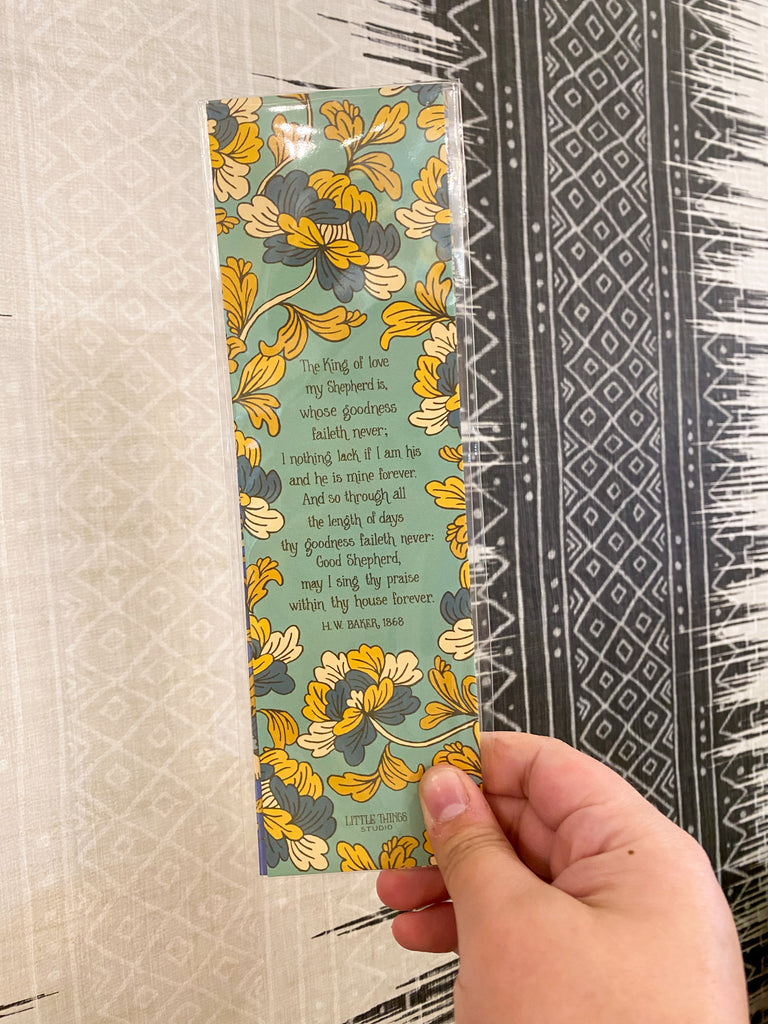 The King of love
my Shepherd is,
whose goodness
faileth never;
I nothing lack if I am his
and he is mine forever.
And so through all
the length of days
thy goodness faileth never:
Good Shepherd,
may I sing thy praise
within thy house forever.
H. W. BAKER, 1868
LITTLE THINGS
STUDIO